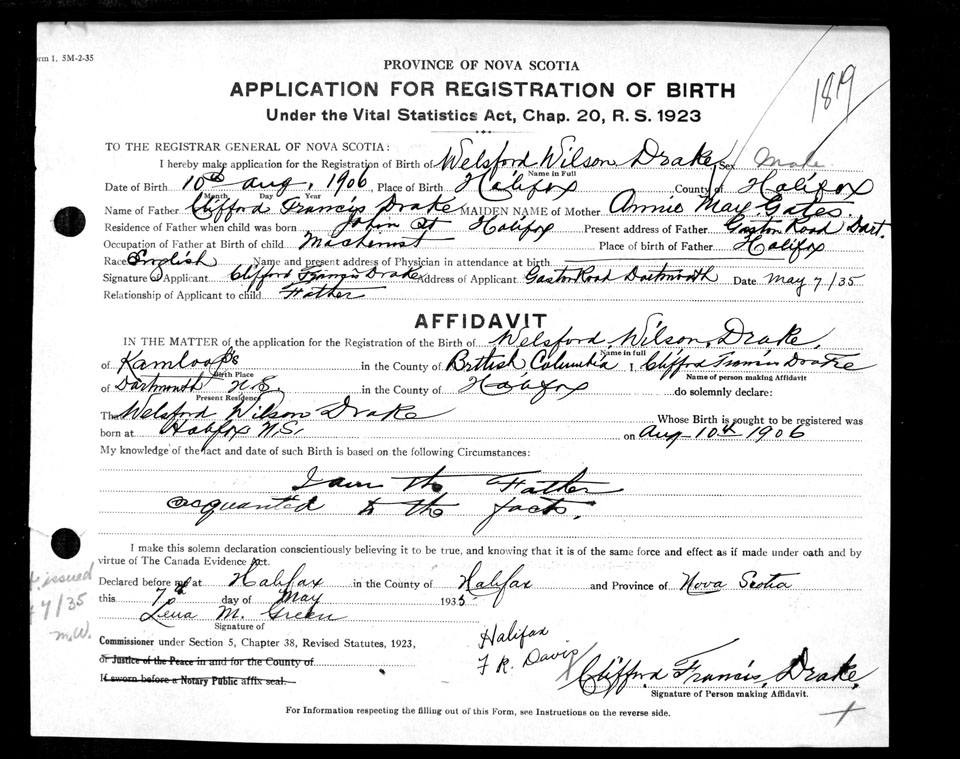 orm 1. 5M-2-35
1819
PROVINCE OF NOVA SCOTIA
APPLICATION FOR REGISTRATION OF BIRTH
Under the Vital Statistics Act, Chap. 20, R. S. 1923
TO THE REGISTRAR GENERAL OF NOVA SCOTIA:
I hereby make application for the Registration of Birth of Welsford Wilson Drake Sex Male
Name in Full
Date of Birth 10th Aug, 1906, Place of Birth Halifax County of Halifax
Month Day Year
Name of Father Clifford Francis Drake MAIDEN NAME of Mother Annie May Gates.
Residence of Father when child was born John St Halifax Present address of Father Gaston Road Dart.
Occupation of Father at Birth of child Machenist Place of birth of Father Halifax
Race English Name and present address of Physician in attendance at birth
Signature of Applicant Clifford Francis Drake Address of Applicant Gaston Road Dartmouth Date May 7/35
Relationship of Applicant to child Father
AFFIDAVIT
IN THE MATTER of the application for the Registration of the Birth of Welsford Wilson Drake,
Name in full
of Kamloops in the County of British Columbia, I, Clifford Francis Drake
Birth Place Name of person making Affidavit
of Dartmouth N.S. in the County of Halifax do solemnly declare:
Present Residence
That Welsford Wilson Drake Whose Birth is sought to be registered was
born at Halifax N.S. on Aug 10th 1906
My knowledge of the fact and date of such Birth is based on the following Circumstances:
I am the Father
acquanted to the facts.
I make this solemn declaration conscientiously believing it to be true, and knowing that it is of the same force and effect as if made under oath and by
virtue of The Canada Evidence Act.
issued
7/35
m.W.
Declared before me at Halifax in the County of Halifax and Province of Nova Scotia
this 7th day of May 1935
Lena M. Green
Signature of
Commissioner under Section 5, Chapter 38, Revised Statutes, 1923,
or Justice of the Peace in and for the County of
If sworn before a Notary Public affix seal.
Halifax
F R. Davis
Clifford Francis Drake.
Signature of Person making Affidavit.
For Information respecting the filling out of this Form, see Instructions on the reverse side.